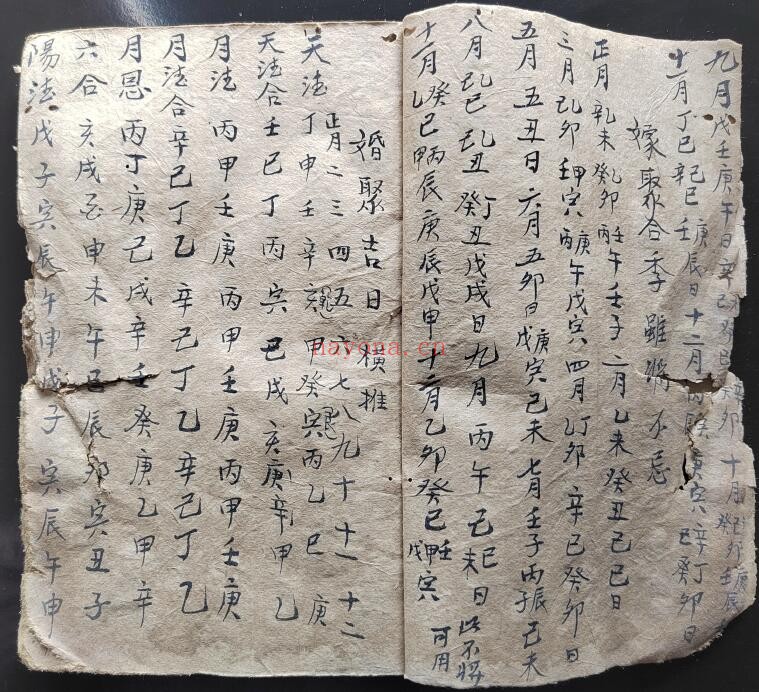 九月戊壬庚午日辛己癸巳辛卯十月己卯庚癸壬辰
十一月丁巳辛己巳壬庚辰日十二月丙辰庚寅辛丁卯日己癸
嫁聚合季雖將不忌
正月辛未癸乙卯丙壬午壬子二月乙未癸丑己巳日
三月乙卯壬甲寅丙庚午戊寅四月乙丁卯辛巳癸卯日
五月五丑日六月五卯日戊庚寅己未七月壬子丙子辰己未
八月乙巳乙丑癸丁丑戊戌日九月丙午己巳未日此不將
十一月乙癸巳甲丙辰庚辰戊甲十二月乙卯癸巳戊甲壬寅可用
婚聚吉日橫推
正月二三四五六七八九十十一十二
天德丁申壬辛亥甲癸寅丙乙巳庚
天德合壬巳丁丙寅己戊亥庚辛甲乙
月德丙甲壬庚丙甲壬庚丙甲壬庚
月德合辛己丁乙辛己丁乙辛己丁乙
月恩丙丁庚己戊辛壬癸庚乙甲辛
六合亥戌酉申未午巳辰卯寅丑子
陽德戊子寅辰午申戌子寅辰午申
nayona.cn